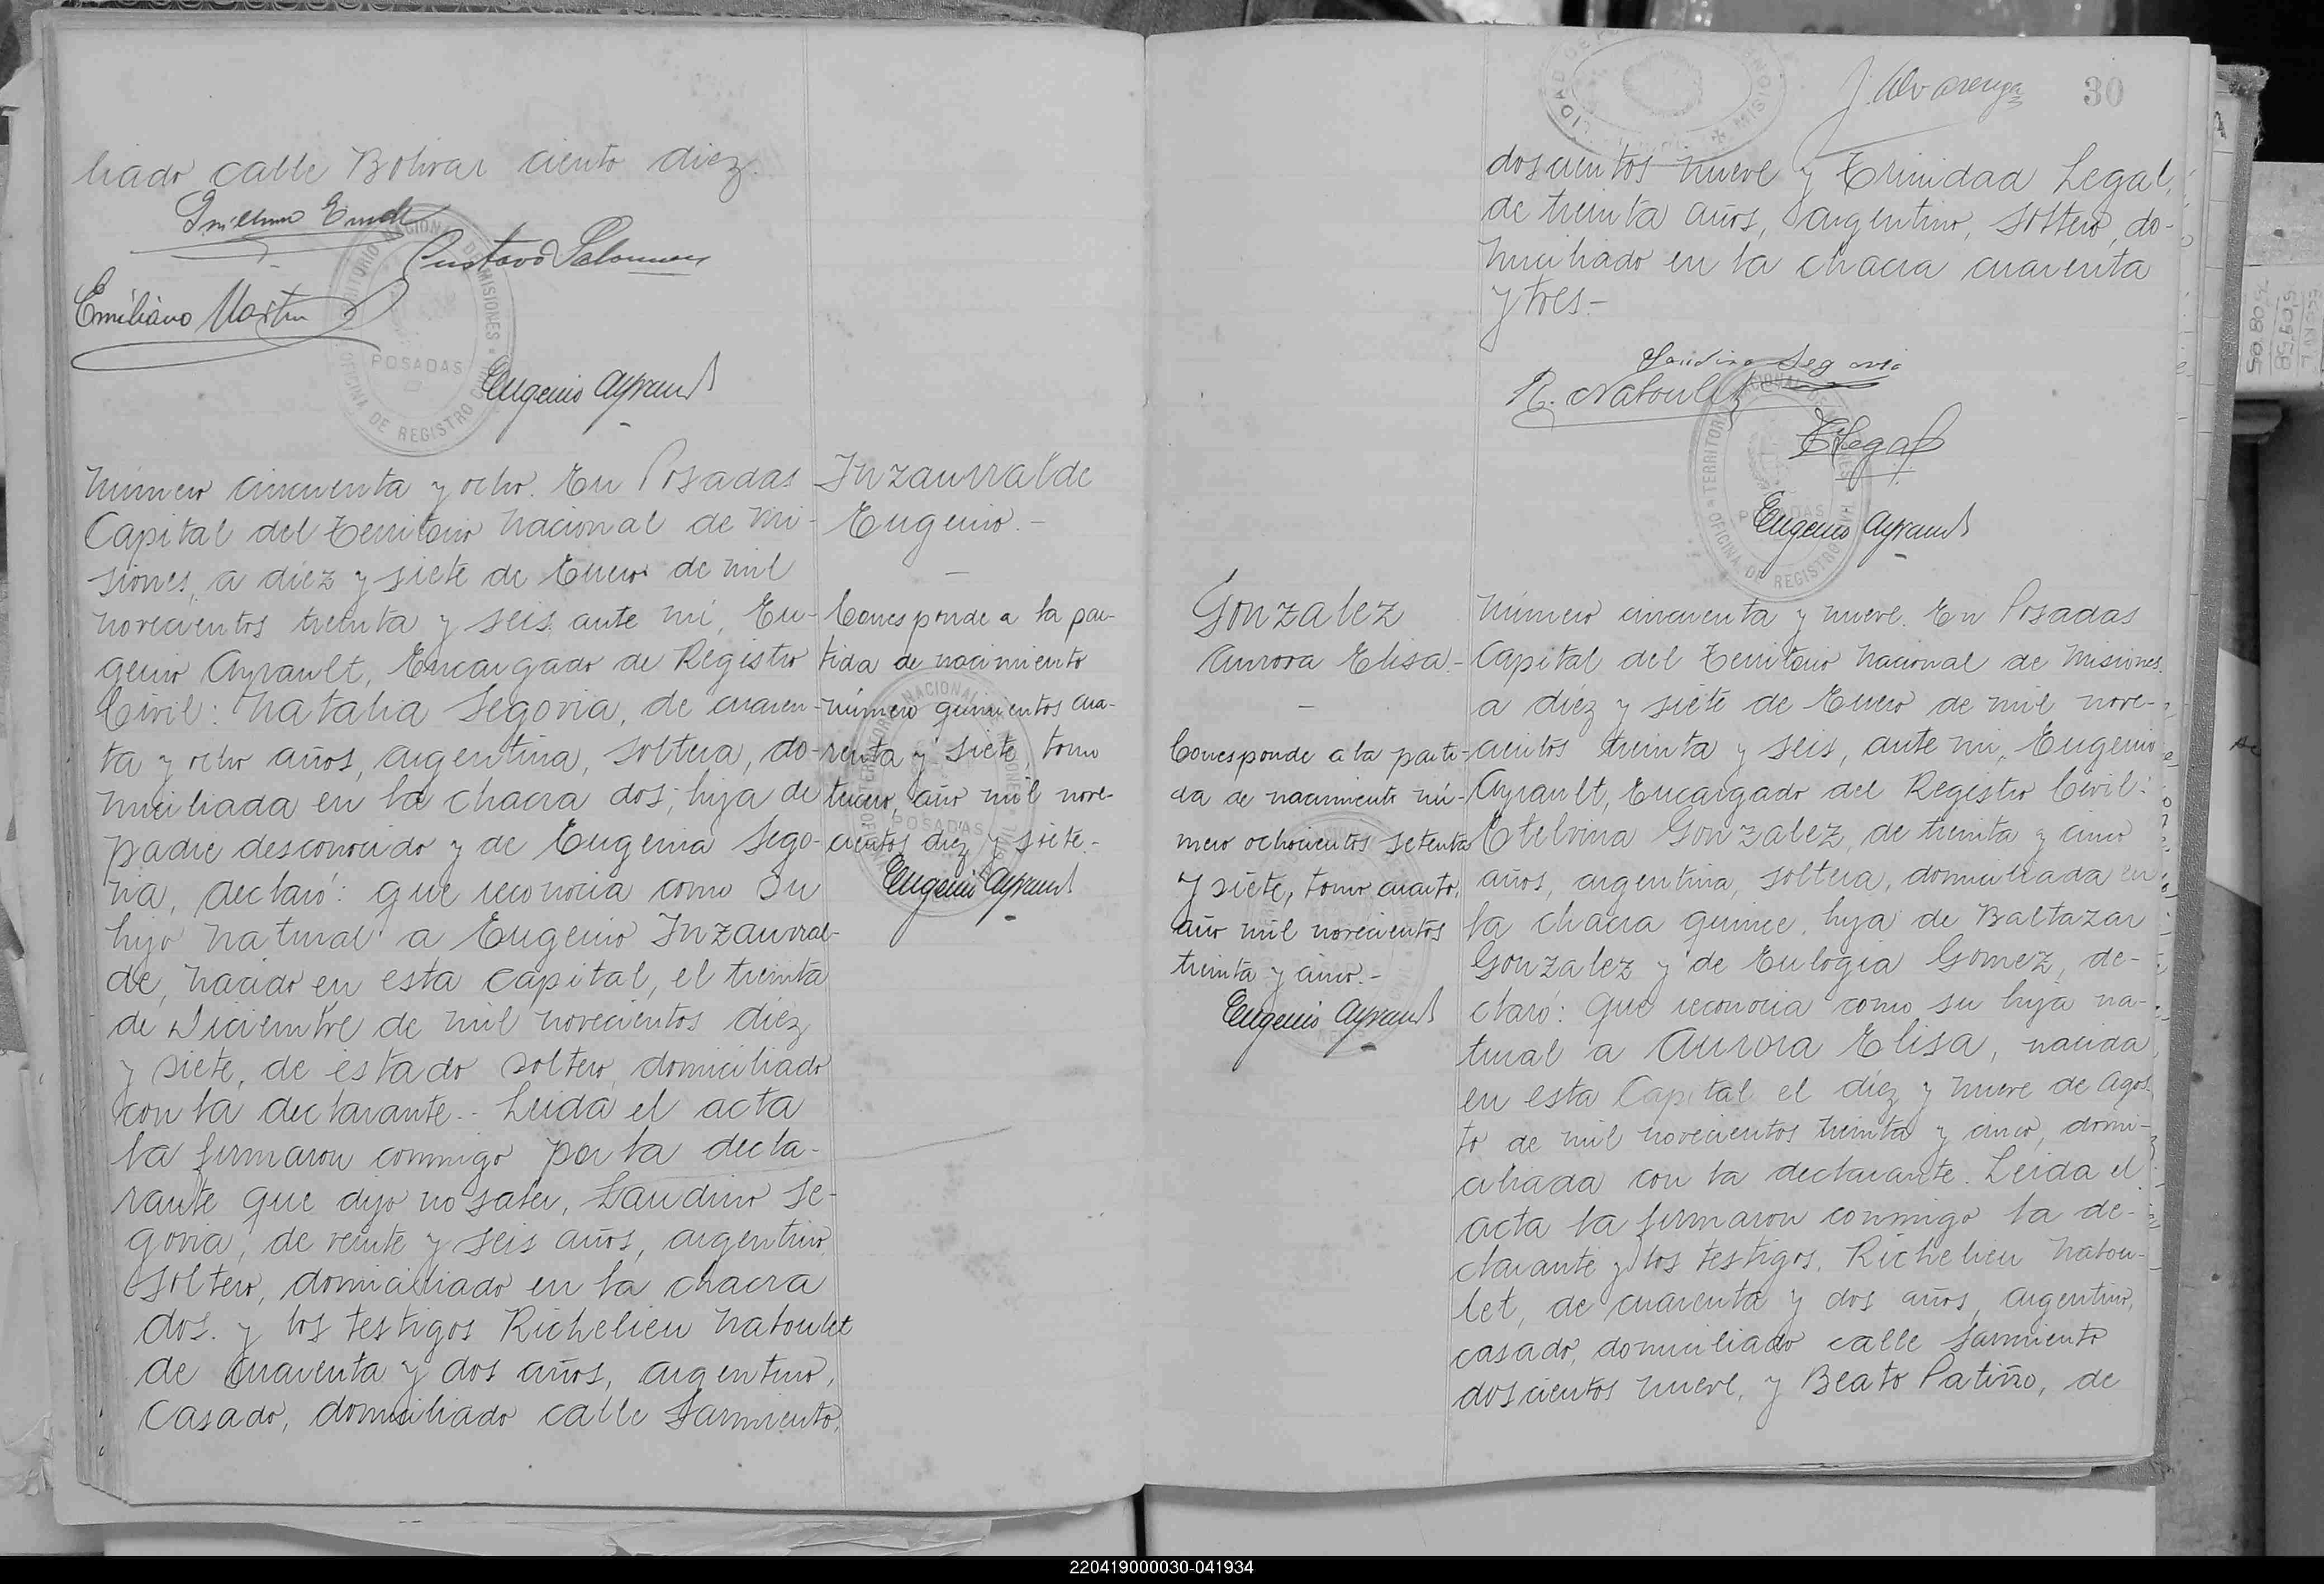 liado calle Bolivar ciento diez.
Guillermo
Gustavo
Emiliano Martin
TERRITORIO NACIONAL DE MISIONES
POSADAS
OFICINA DE REGISTRO CIVIL
Eugenio Ayrault
Inzaurralde
Eugenio.-
Corresponde a la par-
tida de nacimiento
número quinientos cua-
renta y siete, tomo
tercero, año mil nove-
cientos diez y siete.-
Eugenio Ayrault
Número cincuenta y ocho. En Posadas
Capital del Territorio Nacional de Mi-
siones, a diez y siete de Enero de mil
novecientos treinta y seis ante mi, Eu-
genio Ayrault, Encargado de Registro
Civil: Natalia Segovia, de cuaren-
ta y ocho años, argentina, soltera, do-
miciliada en la chacra dos, hija de
padre desconocido y de Eugenia Sego-
via, declaró: que reconocia como su
hijo natural a Eugenio Inzaurral-
de, nacido en esta Capital, el treinta
de Diciembre de mil novecientos diez
y siete, de estado soltero, domiciliado
con la declarante.- Leida el acta
la firmaron conmigo por la decla-
rante que dijo no saber, Laudino Se-
govia, de veinte y seis años, argentino,
soltero, domiciliado en la chacra
dos. y los testigos Richelieu Natoulet
de cuarenta y dos años, argentino,
casado, domiciliado calle Sarmiento,
J. Alvarenga
30
doscientos nueve y Trinidad Legal,
de treinta años, argentino, soltero, do-
miciliado en la chacra cuarenta
y tres.-
Laudino Segovia
R. Natoulet
TLegal
Eugenio Ayrault
TERRITORIO NACIONAL DE MISIONES
POSADAS
OFICINA DE REGISTRO CIVIL
Gonzalez
Aurora Elisa.-
Corresponde a la parti-
da de nacimiento nú-
mero ochocientos setenta
y siete, tomo cuarto,
año mil novecientos
treinta y cinco.-
Eugenio Ayrault
Número cincuenta y nueve. En Posadas
Capital del Territorio Nacional de Misiones
a diez y siete de Enero de mil nove-
cientos treinta y seis, ante mi, Eugenio
Ayrault, Encargado del Registro Civil:
Etelvina Gonzalez, de treinta y cinco
años, argentina, soltera, domiciliada en
la chacra quince, hija de Baltazar
Gonzalez y de Eulogia Gomez, de-
claró: que reconocia como su hija na-
tural a Aurora Elisa, nacida
en esta Capital el diez y nueve de Agos
to de mil novecientos treinta y cinco, domi-
ciliada con la declarante. Leida el
acta la firmaron conmigo la de-
clarante y los testigos, Richelieu Natou-
let, de cuarenta y dos años, argentino,
casado, domiciliado calle Sarmiento
doscientos nueve, y Beato Patiño, de
220419000030-041934